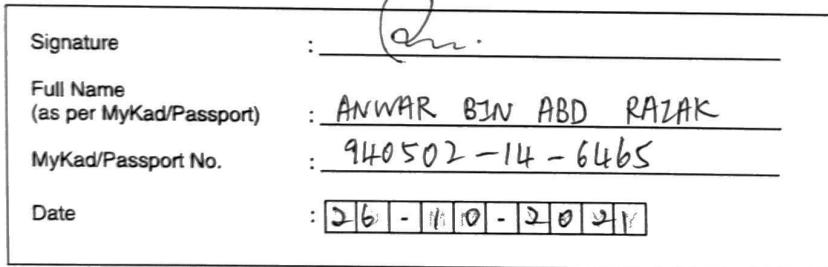 Signature :
Full Name
(as per MyKad/Passport) : ANWAR BIN ABD RAZAK
MyKad/Passport No. : 940502-14-6465
Date : 26-10-2021